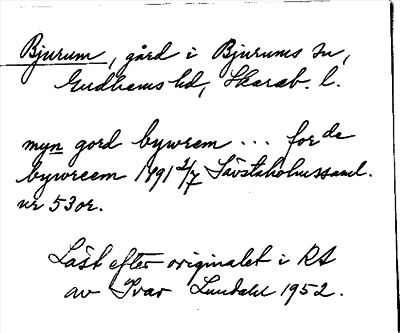 Bjurum, gård i Bjurums sn,
Gudhems hd, Skarab. l.
myn gord bywrem ... for de
bywreem 1491 2/7 Sävstaholmssaml.
nr 53 or.
Läst efter originalet i RA
av Ivar Lundahl 1952.